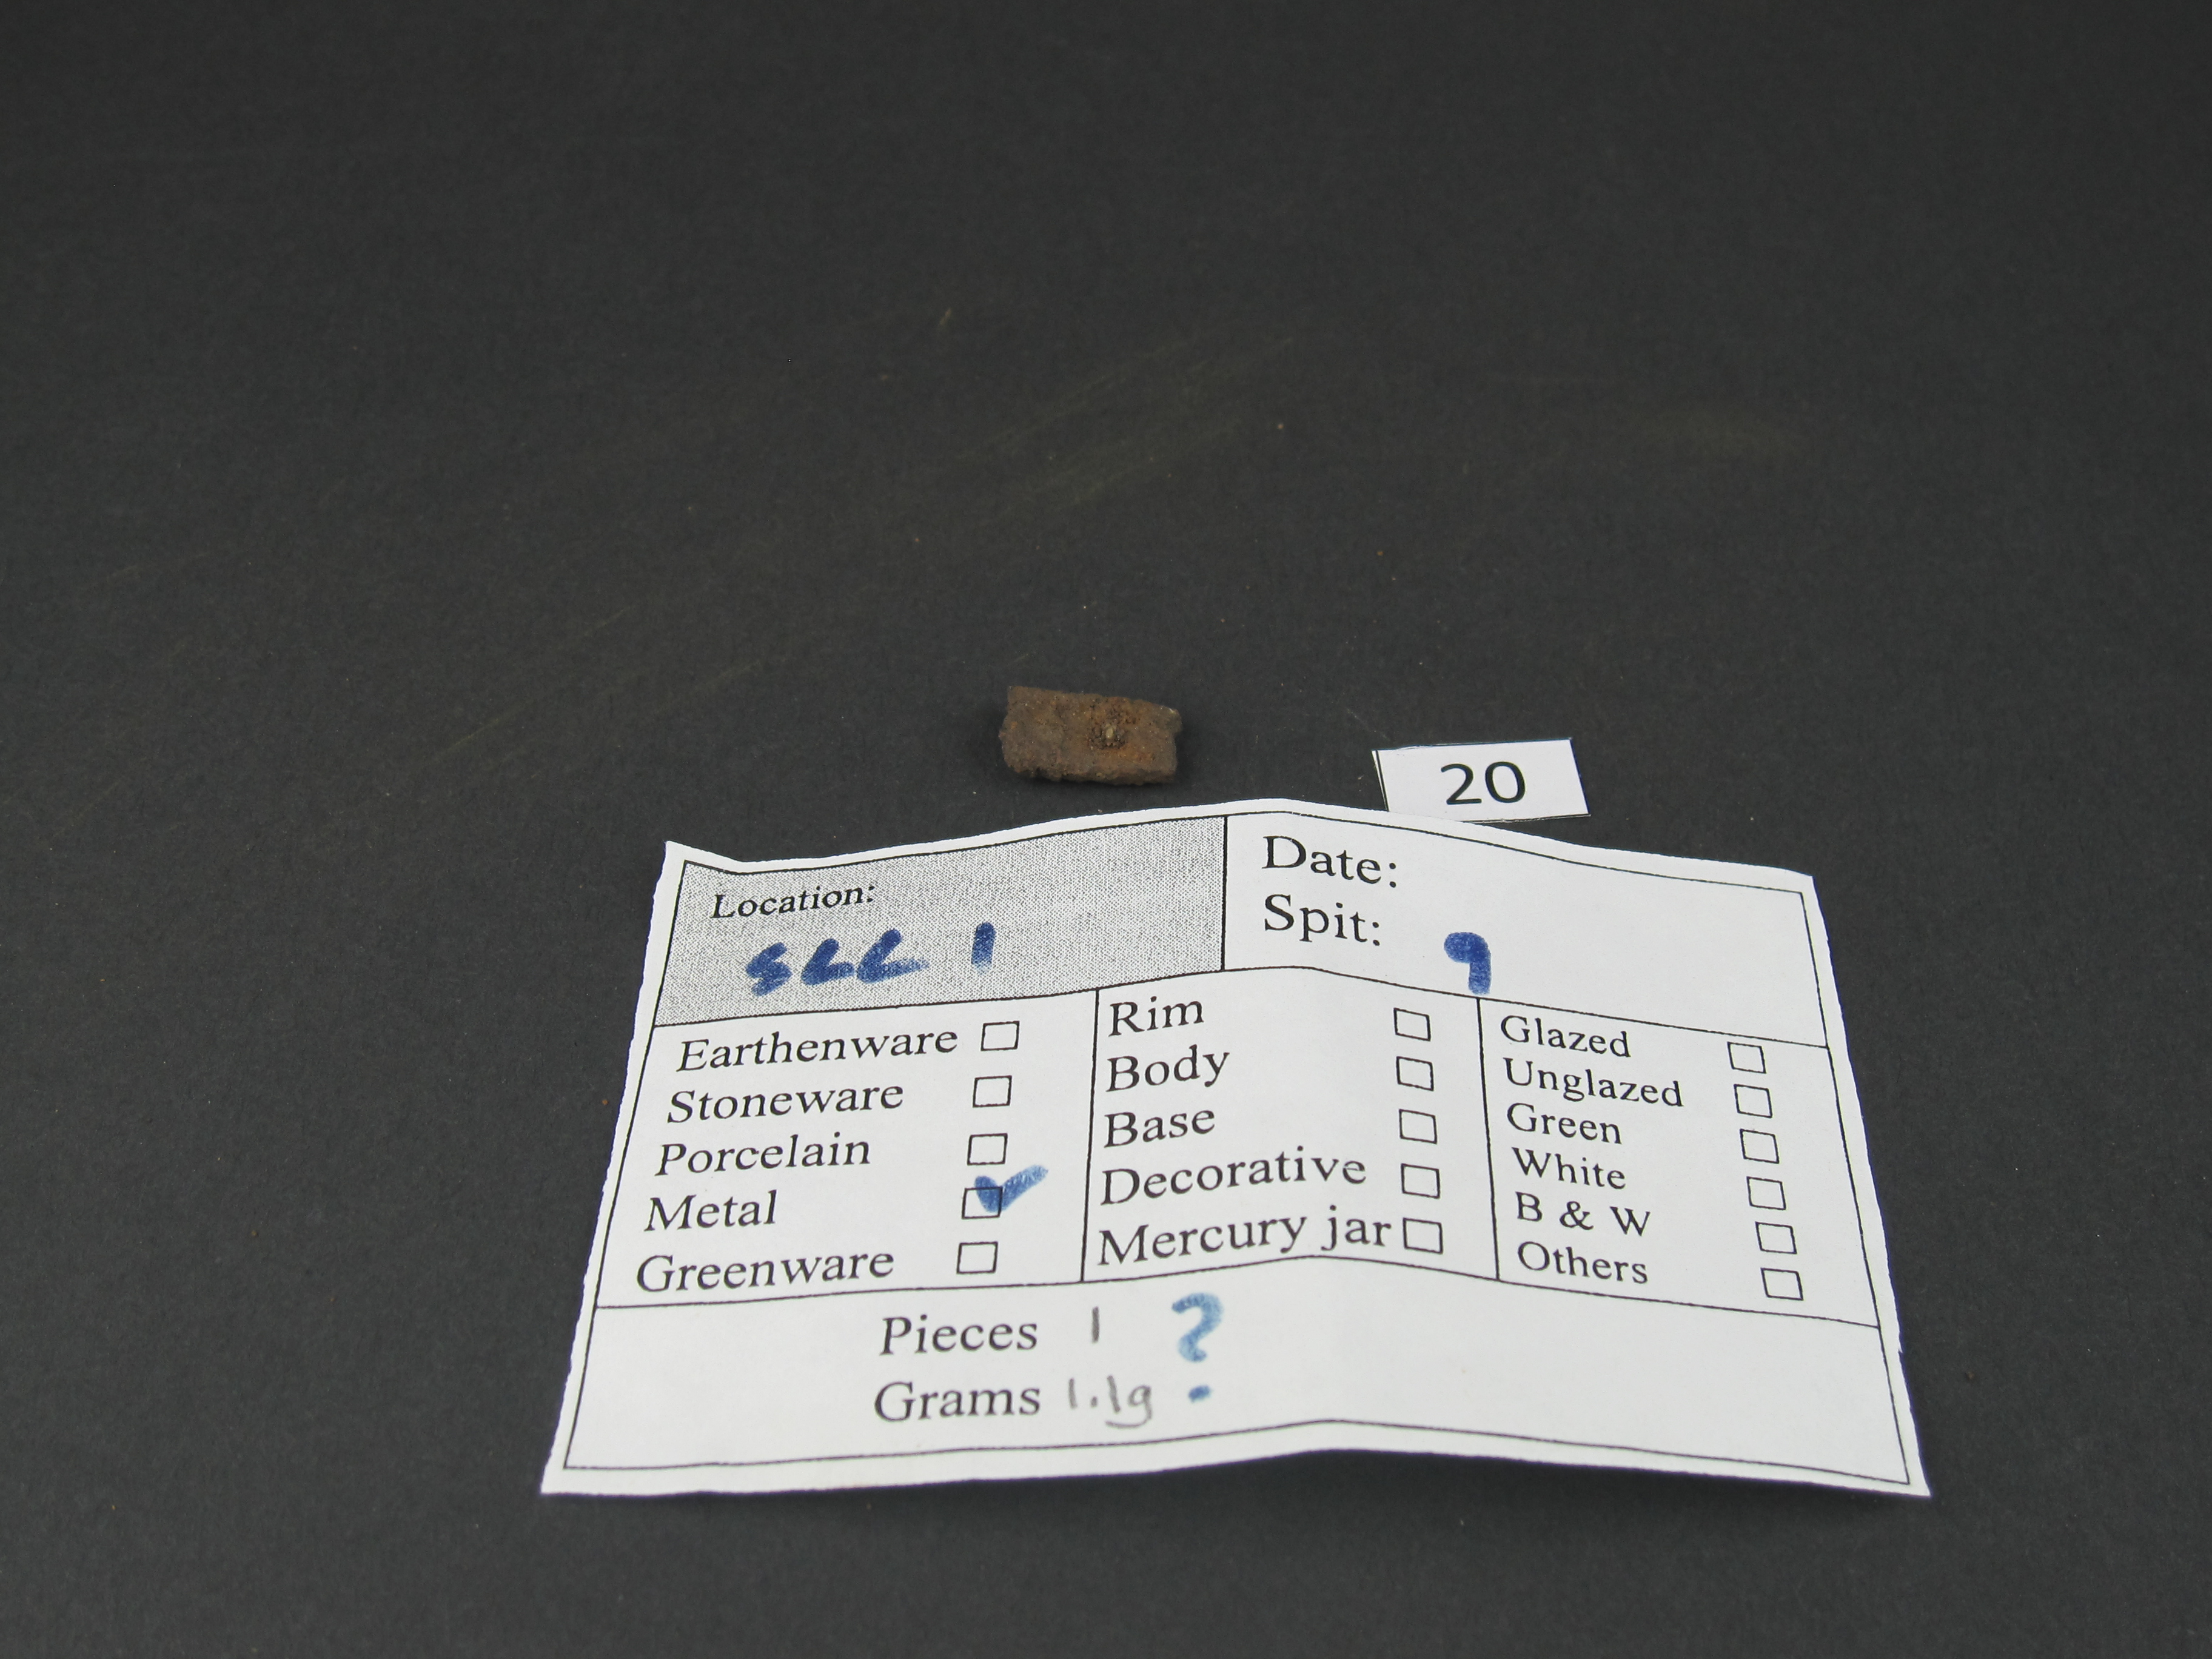 20
Location:
SCC 1
Date:
Spit: 9
Earthenware
Stoneware
Porcelain
Metal ✓
Greenware
Rim
Body
Base
Decorative
Mercury jar
Glazed
Unglazed
Green
White
B & W
Others
Pieces 1 ?
Grams 1.1g